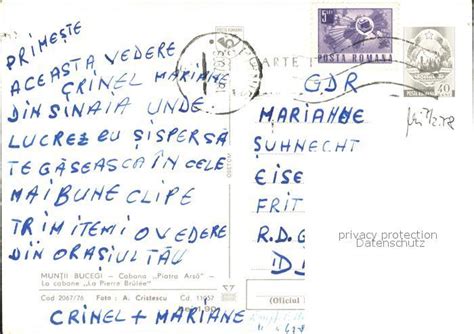 PRIMEȘTE
ACEASTA VEDERE
CRINEL MARIANE
DIN SINAIA UNDE
LUCREZ EU ȘI SPER SĂ
TE GĂSEASCĂ ÎN CELE
MAI BUNE CLIPE
TRIMITEMI O VEDERE
DIN ORAȘUL TĂU
MUNȚII BUCEGI — Cabana „Piatra Arsă"
La cabane „La Pierre Brûlée"
Cod 2067/76 Foto : A. Cristescu
CRINEL + MARIANE
5 LEI
POSTA ROMANA
CARTE
40
GDR
MARIANNE
ȘUHNECHT
EISE
FRIT
R.D.G
(Oficiul
privacy protection
Datenschutz